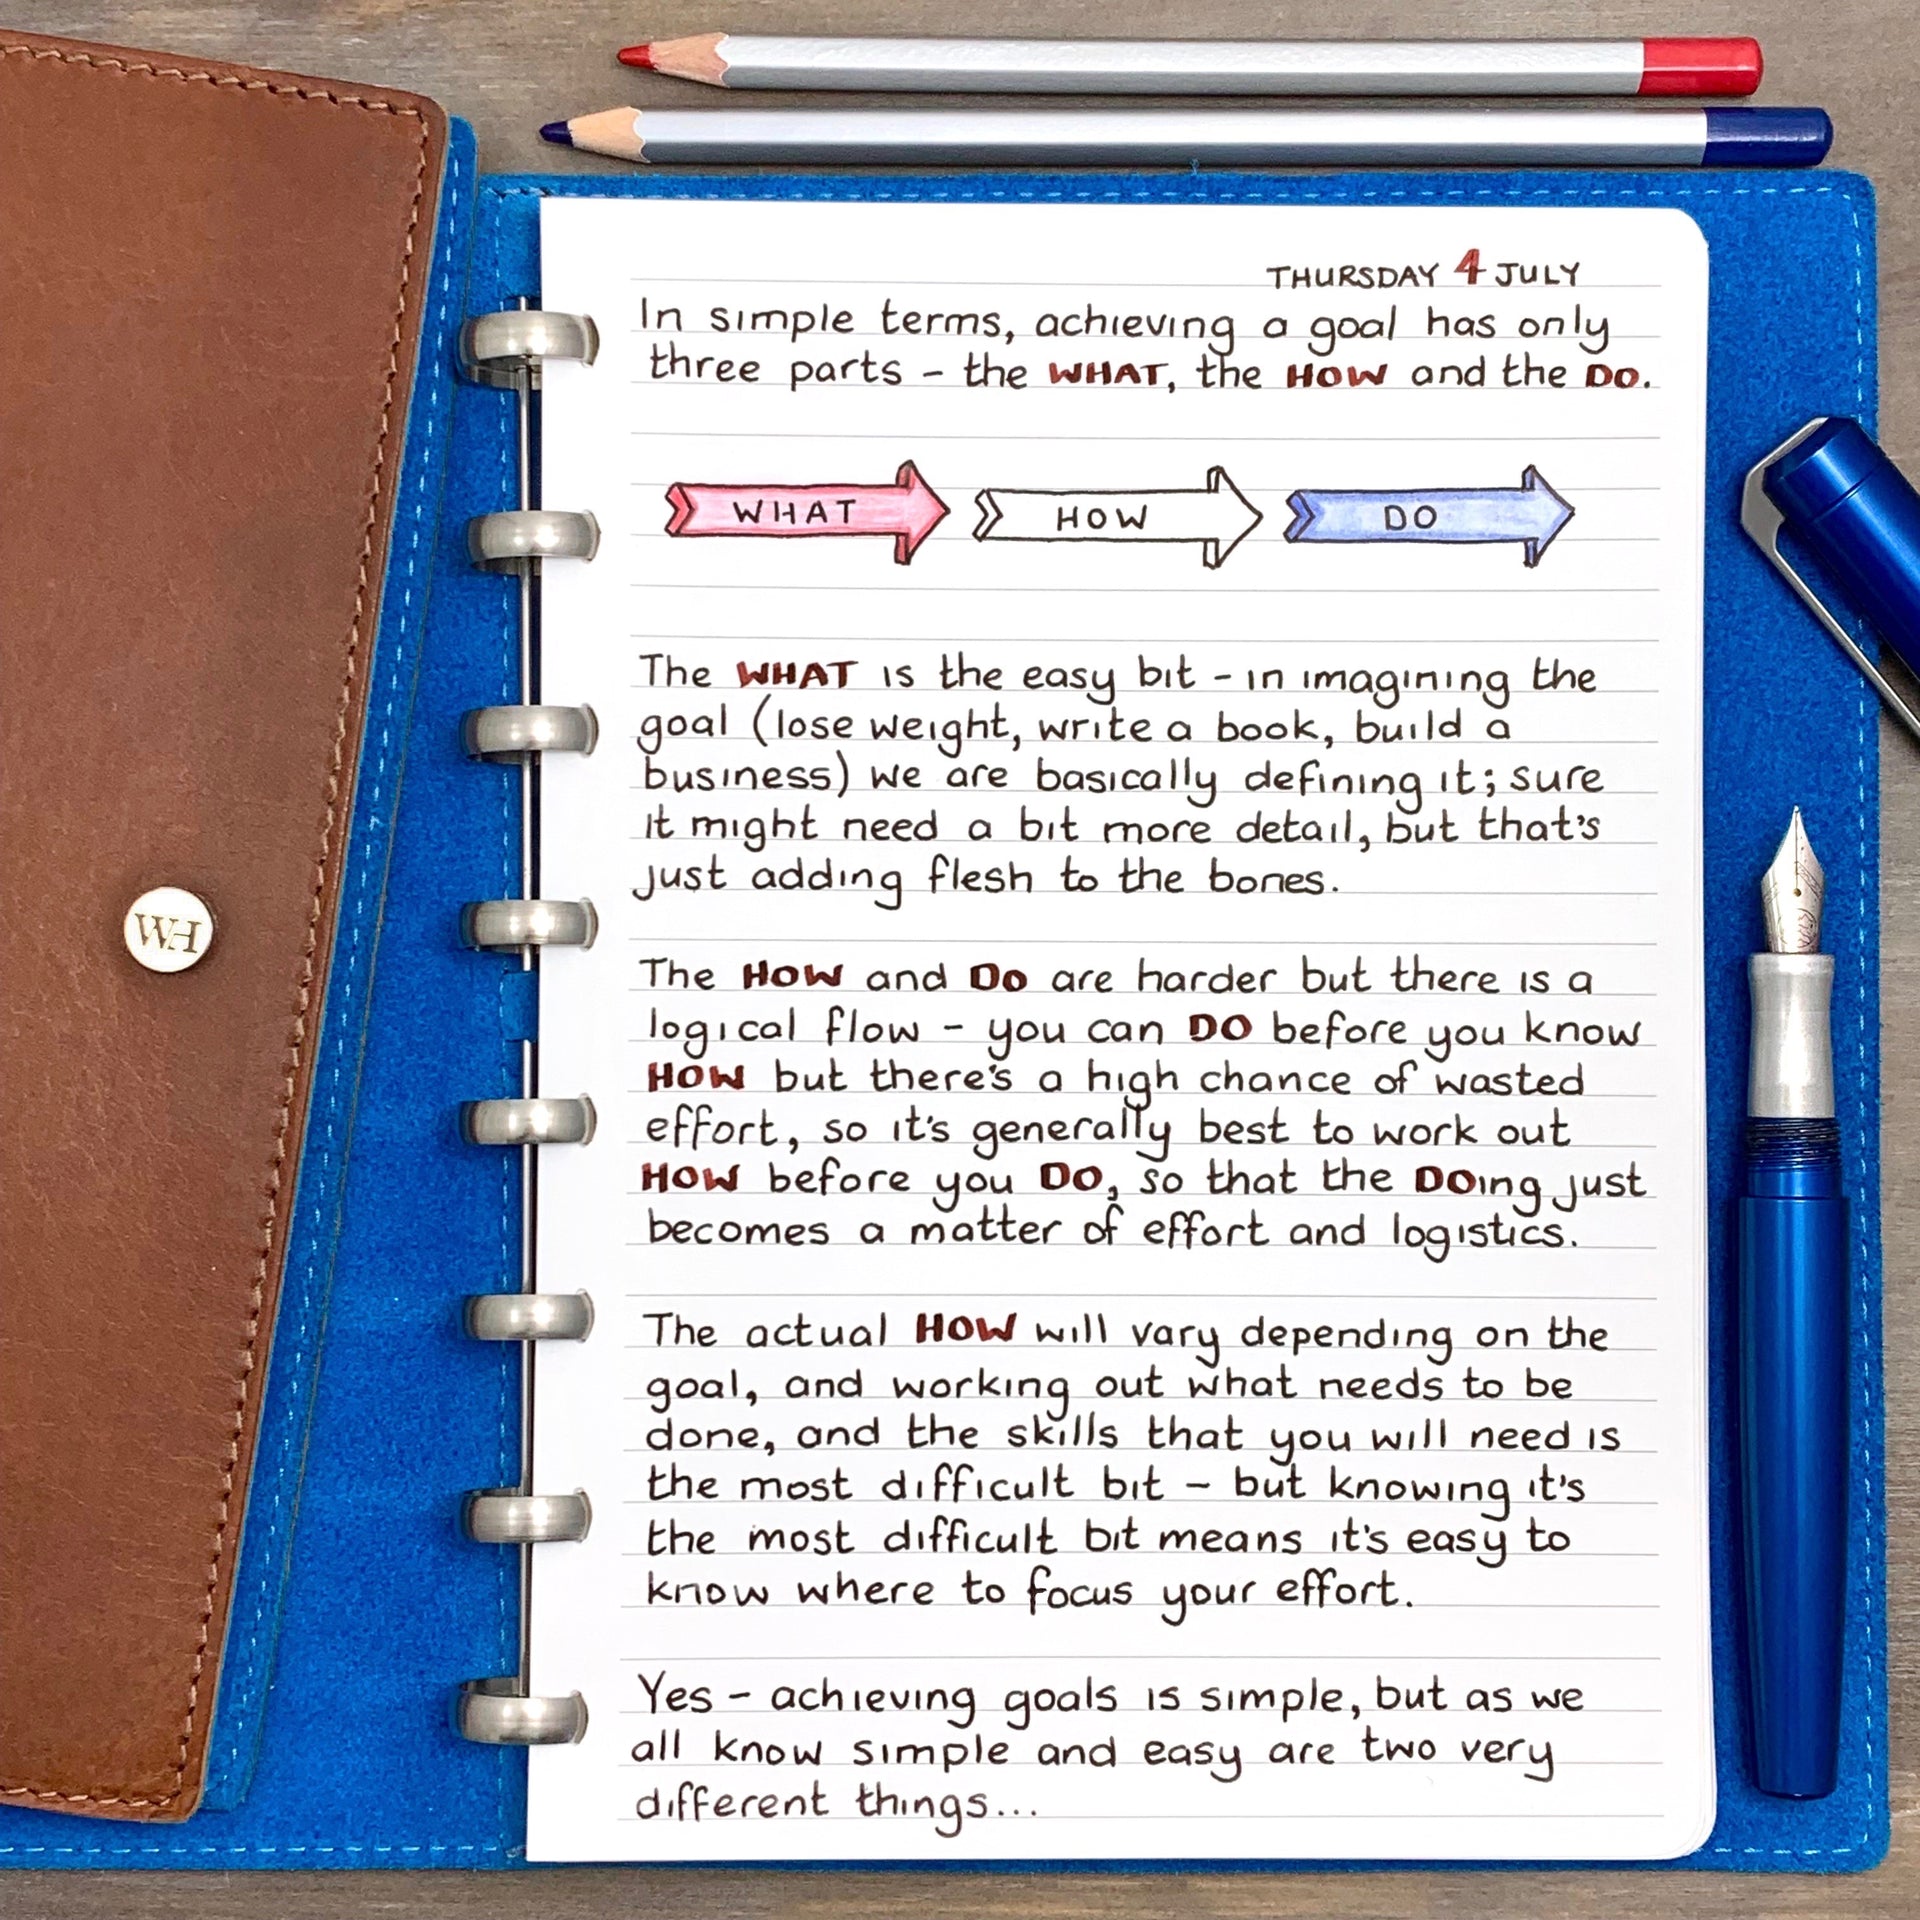 THURSDAY 4 JULY
In simple terms, achieving a goal has only
three parts - the WHAT, the HOW and the DO.
WHAT HOW DO
The WHAT is the easy bit - in imagining the
goal (lose weight, write a book, build a
business) we are basically defining it; sure
it might need a bit more detail, but that's
just adding flesh to the bones.
The HOW and DO are harder but there is a
logical flow - you can DO before you know
HOW but there's a high chance of wasted
effort, so it's generally best to work out
HOW before you DO, so that the DOing just
becomes a matter of effort and logistics.
The actual HOW will vary depending on the
goal, and working out what needs to be
done, and the skills that you will need is
the most difficult bit - but knowing it's
the most difficult bit means it's easy to
know where to focus your effort.
Yes - achieving goals is simple, but as we
all know simple and easy are two very
different things...
WH